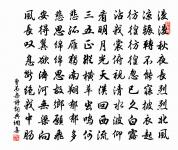 漫漫秋夜長烈烈北風
涼展轉不能寐披衣起
彷徨彷徨忽已久白露
沾我裳俯視清水波仰
看明月光天漢回西流
三五正縱橫草蟲鳴何
悲孤雁獨南翔鬱鬱多
悲思綿綿思故鄉願飛
安得翼欲濟河無梁向
風長歎息斷絕我中腸